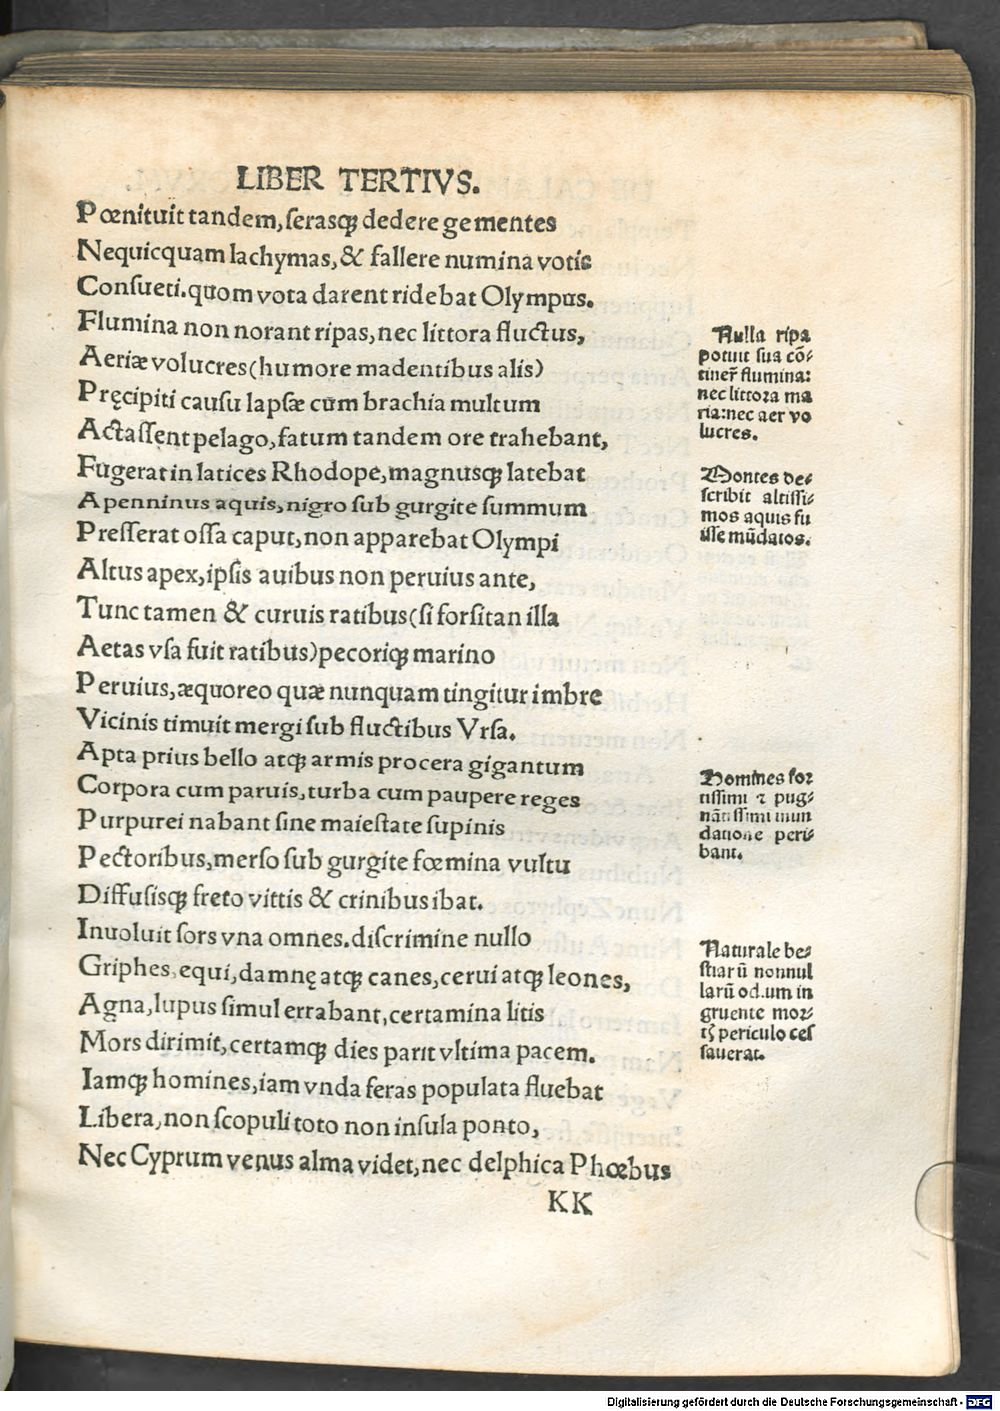 LIBER TERTIVS.
Pœnituit tandem, serasqꝫ dedere gementes
Nequicquam lachymas, & fallere numina votis
Consueti. quom vota darent ridebat Olympus.
Flumina non norant ripas, nec littora fluctus,
Aeriæ volucres (humore madentibus alis)
Pręcipiti casu lapsæ cum brachia multum
Actassent pelago, fatum tandem ore trahebant,
Fugerat in latices Rhodope, magnusqꝫ latebat
Apenninus aquis, nigro sub gurgite summum
Presserat ossa caput, non apparebat Olympi
Altus apex, ipsis auibus non peruius ante,
Tunc tamen & curuis ratibus (si forsitan illa
Aetas vsa fuit ratibus) pecoriqꝫ marino
Peruius, æquoreo quæ nunquam tingitur imbre
Vicinis timuit mergi sub fluctibus Vrsa.
Apta prius bello atqꝫ armis procera gigantum
Corpora cum paruis, turba cum paupere reges
Purpurei nabant sine maiestate supinis
Pectoribus, merso sub gurgite fœmina vultu
Diffusisqꝫ freto vittis & crinibus ibat.
Inuoluit sors vna omnes. discrimine nullo
Griphes, equi, damnę atqꝫ canes, cerui atqꝫ leones,
Agna, lupus simul errabant, certamina litis
Mors dirimit, certamqꝫ dies parit vltima pacem.
Iamqꝫ homines, iam vnda feras populata fluebat
Libera, non scopuli toto non insula ponto,
Nec Cyprum venus alma videt, nec delphica Phœbus
KK
Nulla ripa
potuit sua cõ⸗
tiner̃ flumina:
nec littora ma
ria: nec aer vo
lucres.
Montes de⸗
scribit altissi⸗
mos aquis fu
isse mũdatos.
Homines for
tissimi ⁊ pug⸗
nãtissimi inun
datione peri⸗
bant.
Naturale be⸗
stiarũ nonnul
larũ odium in
gruente mor⸗
tꝭ periculo ces
sauerat.
Digitalisierung gefördert durch die Deutsche Forschungsgemeinschaft - DFG